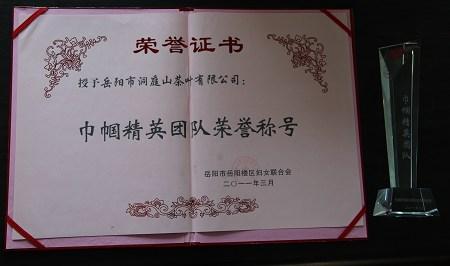 荣誉证书
授予岳阳市洞庭山茶叶有限公司：
巾帼精英团队荣誉称号
岳阳市岳阳楼区妇女联合会
二〇一一年三月
巾帼精英团队